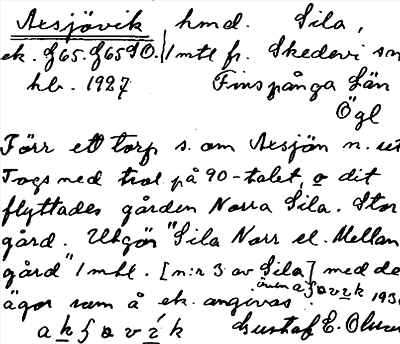 Aksjövik, hmd. Sila,
ek. J65. J65SO. 1 mtl fr. Skedevi sn
hb. 1927 Finspånga Län
Ögl
Förr ett torp s. om Aksjön n. ut
Togs ned trol på 90-talet, o dit
flyttades gården Norra Sila. Stor
gård. Utgör "Sila Norr el. Mellan
gård" 1 mtl. [n:r 3 av Sila] med de
ägor som å ek. angivas. även
193
Gustaf E. Olsson